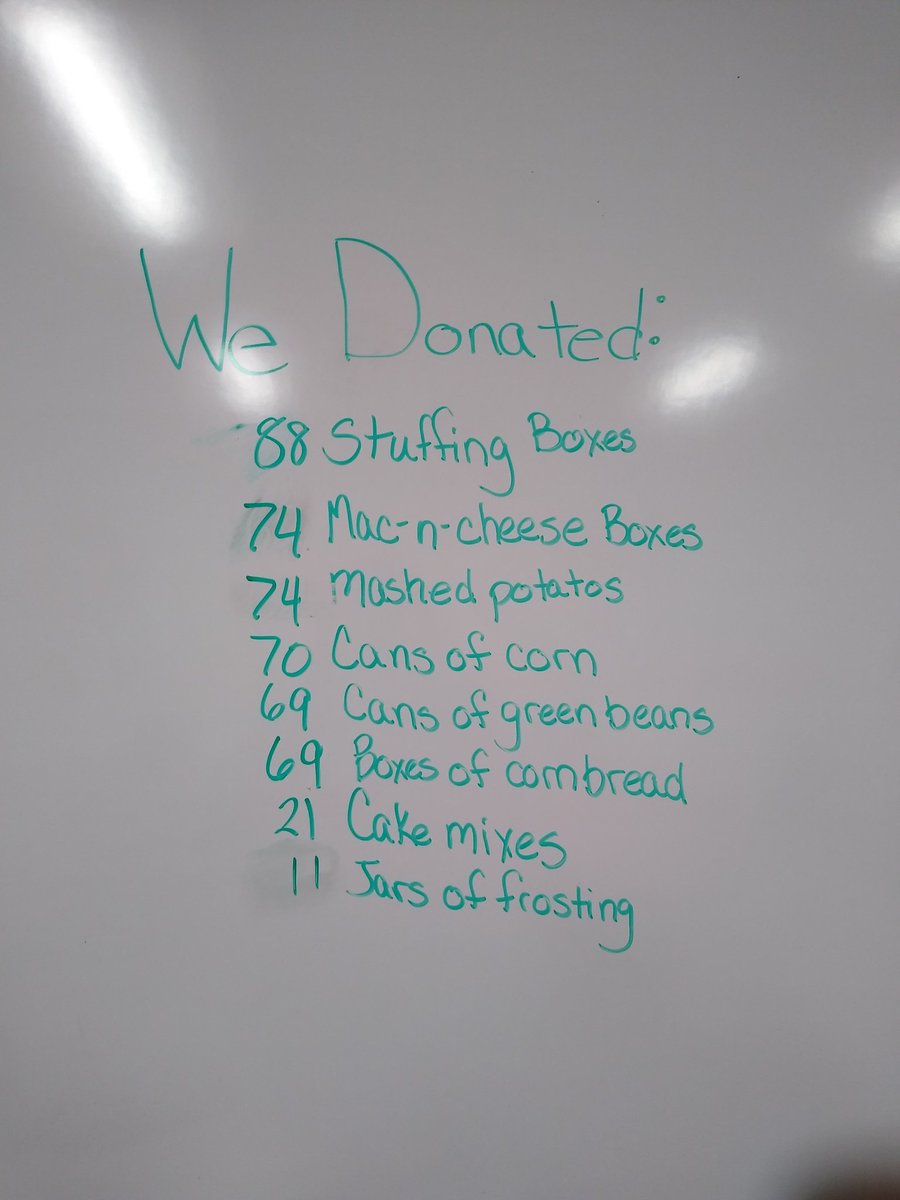 We Donated:
88 Stuffing Boxes
74 Mac-n-cheese Boxes
74 Mashed potatos
70 Cans of corn
69 Cans of green beans
69 Boxes of cornbread
21 Cake mixes
11 Jars of frosting